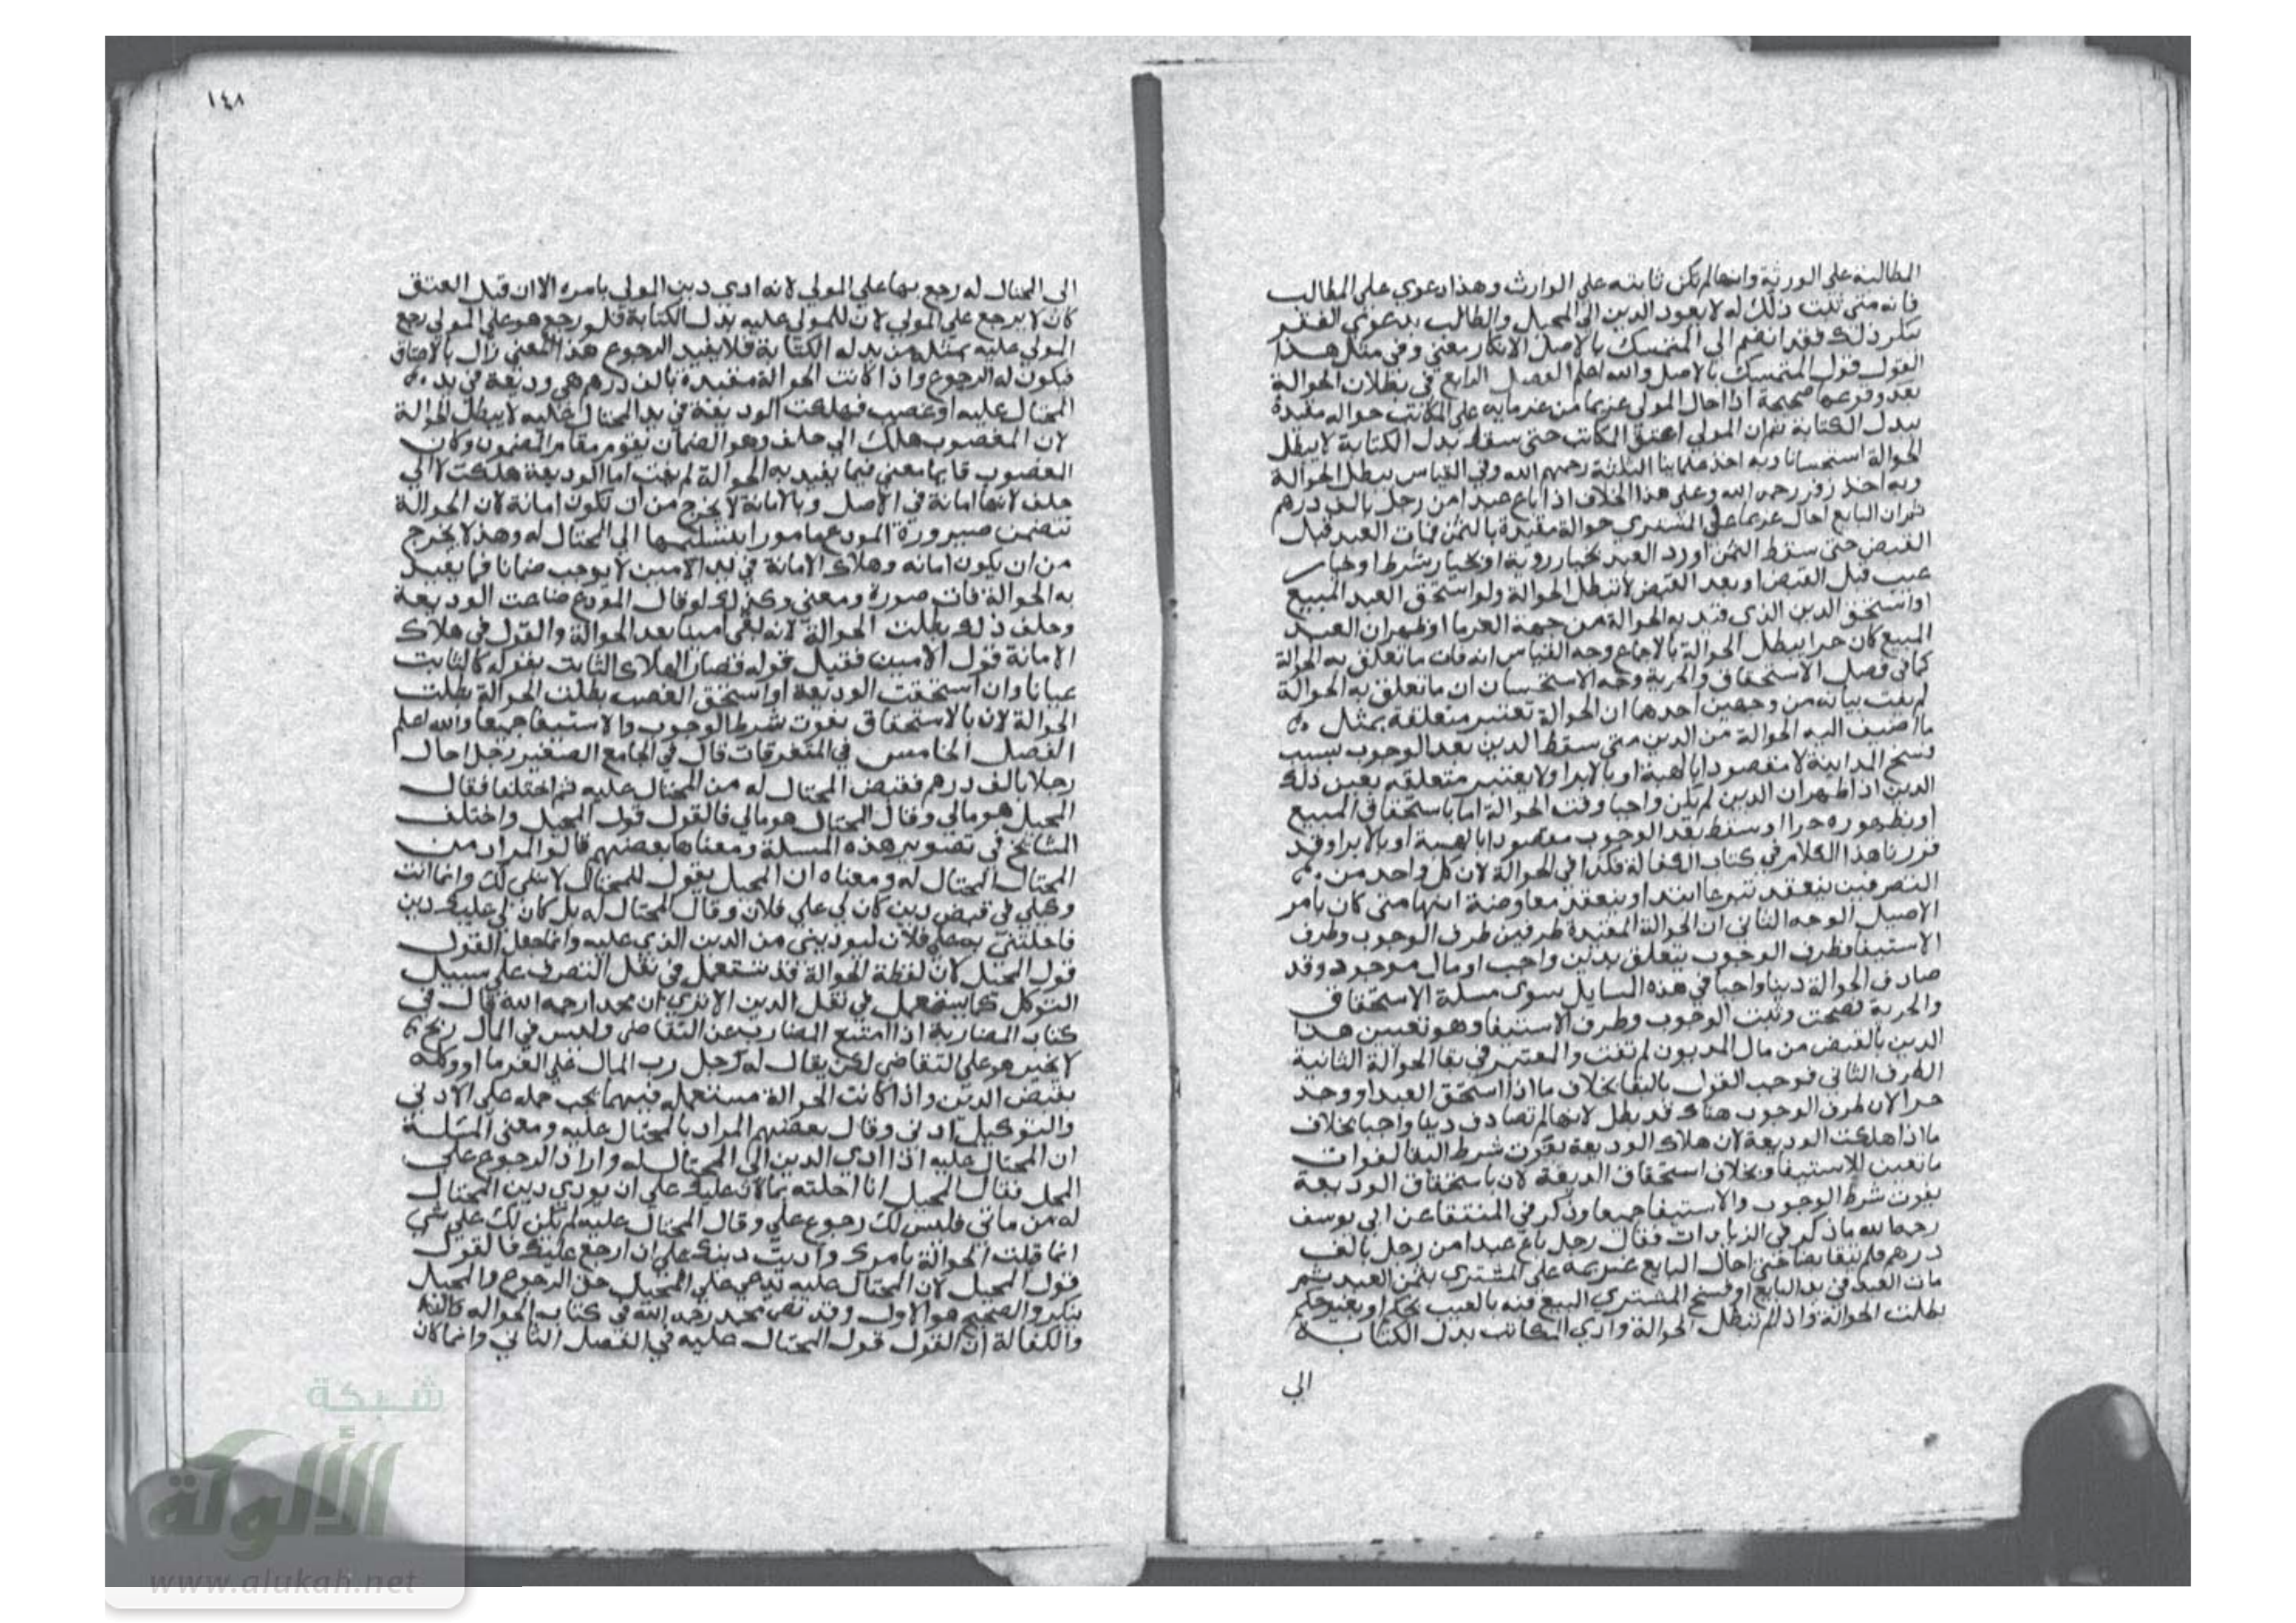 المطالبة على الورثة وانها لم تكن ثابته على الوارث وهذا دعوي على المطالب
فانه متى ثبت ذلك له لا يعود الدين الى المحيل والطالب بدعوي الفقر
ينكر ذلك فقد انضم الى المتمسك بالاصل الانكار معني وفي مثل هذا
القول قول المتمسك بالاصل والله اعلم الفصل الرابع في بطلان الحوالة
بعد وقوعها صحيحة اذا احال المولي غريما من غرمايه على المكاتب حواله مقيدة
ببدل الكتابة ثم ان المولي اعتق المكاتب حتى سقط بدل الكتابة لا يبطل
الحوالة استحسانا وبه اخذ علماينا الثلثة رحمهم الله وفي القياس يبطل الحوالة
وبه اخذ زفر رحمه الله وعلى هذا الخلاف اذا باع عبدا من رجل بالف درهم
ثم ان البايع احال غريما على المشتري حوالة مقيدة بالثمن فمات العبد قبل
القبض حتى سقط الثمن اورد العبد بخيار روية او بخيار شرط او بخيار
عيب قبل القبض او بعد القبض لا تبطل الحوالة ولو استحق العبد المبيع
او استحق الدين الذي قيد به الحوالة من جهة الغرما او ظهر ان العبد
المبيع كان حرا يبطل الحوالة بالاجماع وجه القياس انه فات ما تعلق به الحوالة
كما في فصل الاستحقاق والحرية وجه الاستحسان ان ما تعلق به الحوالة
لم يفت بيانه من وجهين احدهما ان الحوالة تعتبر متعلقة بمثل
ما اضيف اليه الحوالة من الدين متى سقط الدين بعد الوجوب بسبب
فسخ المداينة لا مقصودا بالهبة او بالابرا ولا يعتبر متعلقه بعين ذلك
الدين اذا ظهر ان الدين لم يكن واجبا وقت الحوالة اما باستحقاق المبيع
او بظهوره حرا او سقط بعد الوجوب مقصودا بالهبة او بالابرا وقد
قررنا هذا الكلام في كتاب الكفالة فكذا في الحوالة لان كل واحد من
التصرفين ينعقد تبرعا ابتدا وينعقد معاوضة انتها متى كان بامر
الاصيل الوجه الثاني ان الحوالة المقيدة طرفين طرف الوجوب وطرف
الاستيفا وطرف الوجوب يتعلق بدين واجب او مال موجود وقد
صادف الحوالة دينا واجبا في هذه المسايل سوى مسلة الاستحقاق
والحرية فصحت وثبت الوجوب وطرف الاستيفا وهو تعيين هذا
الدين بالقبض من مال المديون لم تفت والمعتبر في بقا الحوالة الثانية
الطرف الثاني فوجب القول بالبقا بخلاف ما اذا استحق العبد او وجد
حرا لان طرف الوجوب هناك قد بطل لانها لم تصادف دينا واجبا بخلاف
ما اذا هلكت الوديعة لان هلاك الوديعة يفوت شرط البقا لفوات
ما تعين للاستيفا وبخلاف استحقاق الوديعة لان باستحقاق الوديعة
يفوت شرط الوجوب والاستيفا جميعا وذكر في المنتقا عن ابي يوسف
رحمه الله ما ذكر في الزيادات فقال رجل باع عبدا من رجل بالف
درهم فلم يتقابضا حتى احال البايع غريمه على المشتري بثمن العبد ثم
مات العبد في يد البايع او فسخ المشتري البيع فيه بالعيب بحكم او بغير حكم
بطلت الحوالة واذا لم تبطل الحوالة وادي المكاتب بدل الكتابة
الي
١٤٨
الى المحتال له رجع بها على المولي لانه ادي دين المولي بامره الا ان قبل العتق
كان لا يرجع على المولي لان للمولي عليه بدل الكتابة فلو رجع هو على المولي رجع
المولي عليه بمثله من بدله الكتابة فلا يفيد الرجوع هذا المعني زال بالاعتاق
فيكون له الرجوع واذا كانت الحوالة مقيدة بالف درهم هي وديعة في يد
المحتال عليه او غصب فهلكت الوديعة في يد المحتال عليه لا يبطل الحوالة
لان المغصوب هلك الي خلف وهو الضمان يقوم مقام المضمون وكان
المغصوب قايما معني فيما يفيد به الحوالة لم يفت اما الوديعة هلكت لا الي
خلف لانها امانة في الاصل وبالامانة لا يخرج من ان تكون امانة لان الحوالة
تتضمن صيرورة المودع مامورا بتسليمها الي المحتال له وهذا لا يخرج
من ان يكون امانه وهلاك الامانة في يد الامين لا يوجب ضمانا فما يفيد
به الحوالة فات صورة ومعني وكذلك لو قال المودع ضاعت الوديعة
وحلف ذلك بطلت الحوالة لانه بقي امينا بعد الحوالة والقول في هلاك
الامانة قول الامين فقبل قوله فصار الهلاك الثابت بقوله كالثابت
عيانا وان استحقت الوديعة او استحق الغصب بطلت الحوالة بطلت
الحوالة لان بالاستحقاق يفوت شرط الوجوب والاستيفا جميعا والله اعلم
الفصل الخامس في المتفرقات قال في الجامع الصغير رجل احال
رجلا بالف درهم فقبض المحتال له من المحتال عليه ثم اختلفا فقال
المحيل هو مالي وقال المحتال هو مالي فالقول قول المحيل واختلف
المشايخ في تصوير هذه المسلة ومعناها بعضهم قالوا المراد من
المحتال المحتال له ومعناه ان المحيل يقول للمحتال لا شي لك وانما انت
وكيلي في قبض دين كان لي على فلان وقال المحتال له بل كان لي عليك دين
فاحلتني به على فلان ليودينى من الدين الذي عليه وانما جعل القول
قول المحيل لان لفظة الحوالة قد تستعمل في نقل التصرف على سبيل
التوكل كما يستعمل في نقل الدين الا تري ان محمدا رحمه الله قال في
كتاب المضاربة اذا امتنع المضارب عن التقاضي وليس في المال ربح
لا يجبر هو على التقاضي لكن يقال له احل رب المال على الغرما او وكله
بقبض الدين واذا كانت الحوالة مستعمله فيهما يجب حمله على الادني
والتوكيل ادني وقال بعضهم المراد بالمحتال عليه ومعني المسئلة
ان المحتال عليه اذا ادي الدين الى المحتال له واراد الرجوع على
المحل فقال المحيل انا احلته بما كان عليك على ان يودي دين المحتال
له من مالي فليس لك رجوع علي وقال المحتال عليه لم يكن لك علي شي
انما قبلت الحوالة بامرك واديت دينك على ان ارجع عليك فالقول
قول المحيل لان المحتال عليه يدعي على المحيل حق الرجوع والمحيل
ينكر والصحيح هو الاول وقد نص محمد رحمه الله في كتاب الحواله
والكفالة ان القول قول المحتال عليه في الفصل الثاني وانما كان
شبكة
الألولة
www.alukah.net